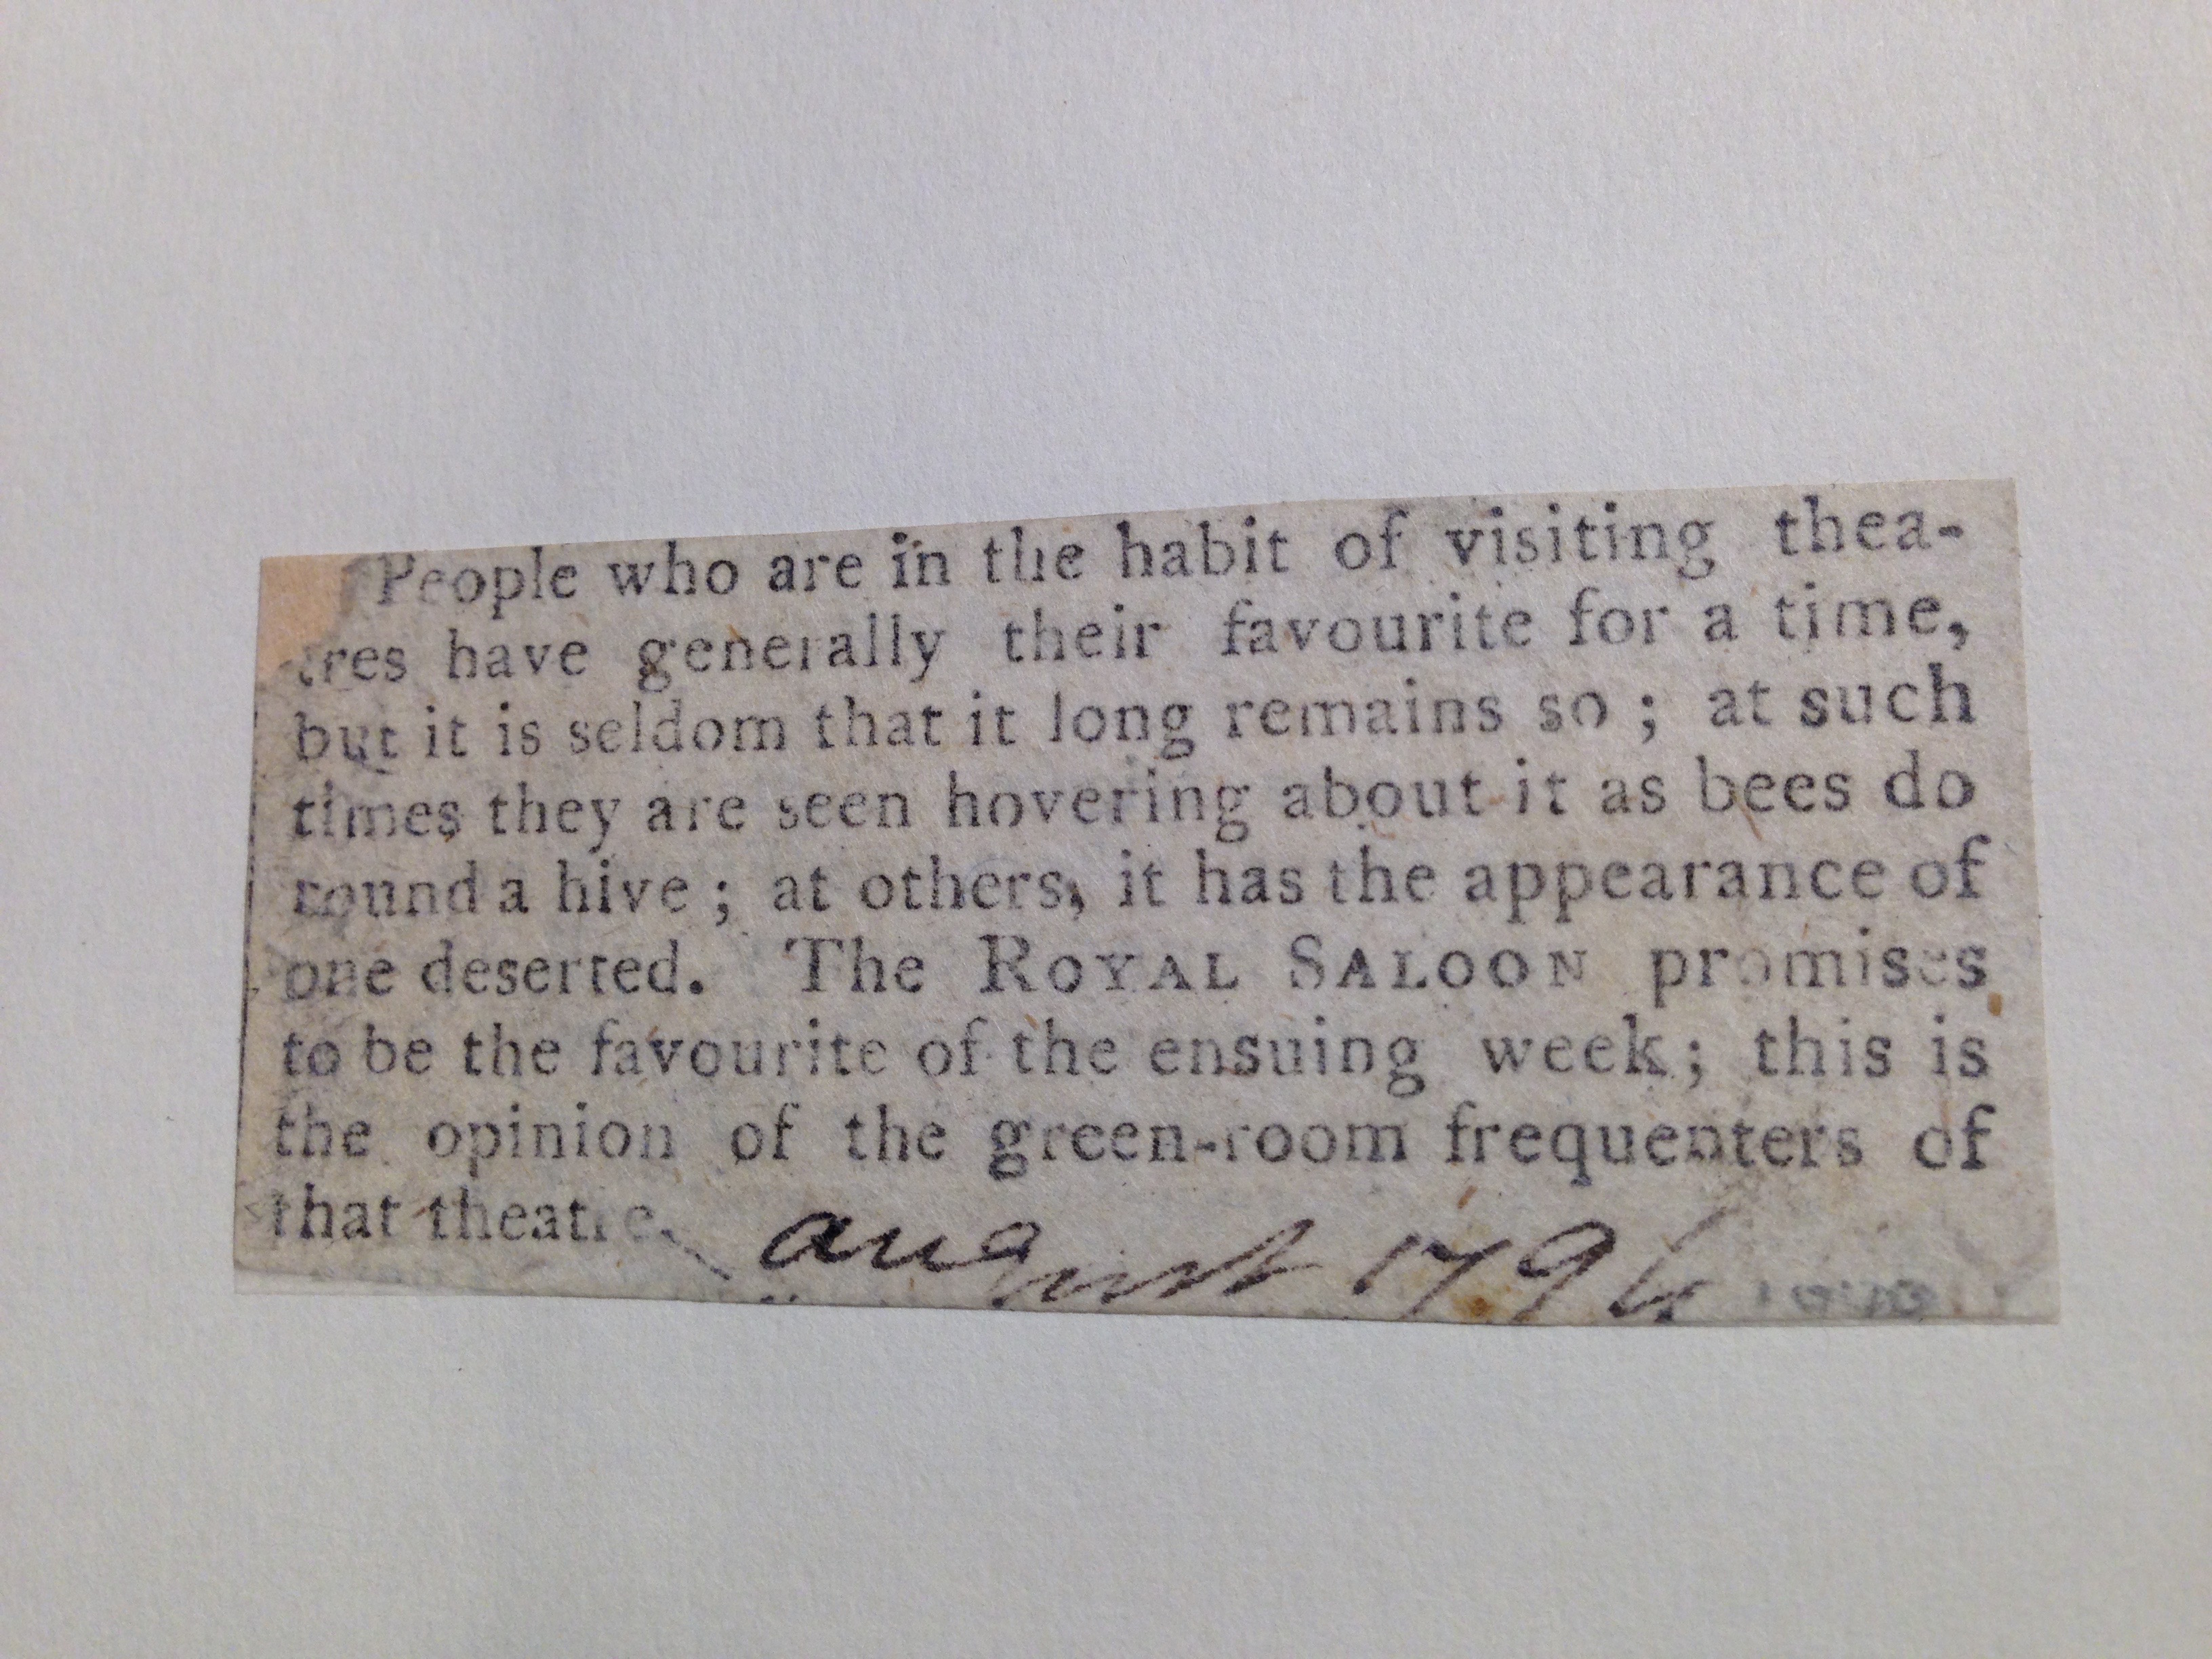 People who are in the habit of visiting thea-
tres have generally their favourite for a time,
but it is seldom that it long remains so; at such
times they are seen hovering about it as bees do
round a hive; at others, it has the appearance of
one deserted. The ROYAL SALOON promises
to be the favourite of the ensuing week; this is
the opinion of the green-room frequenters of
that theatre.
august